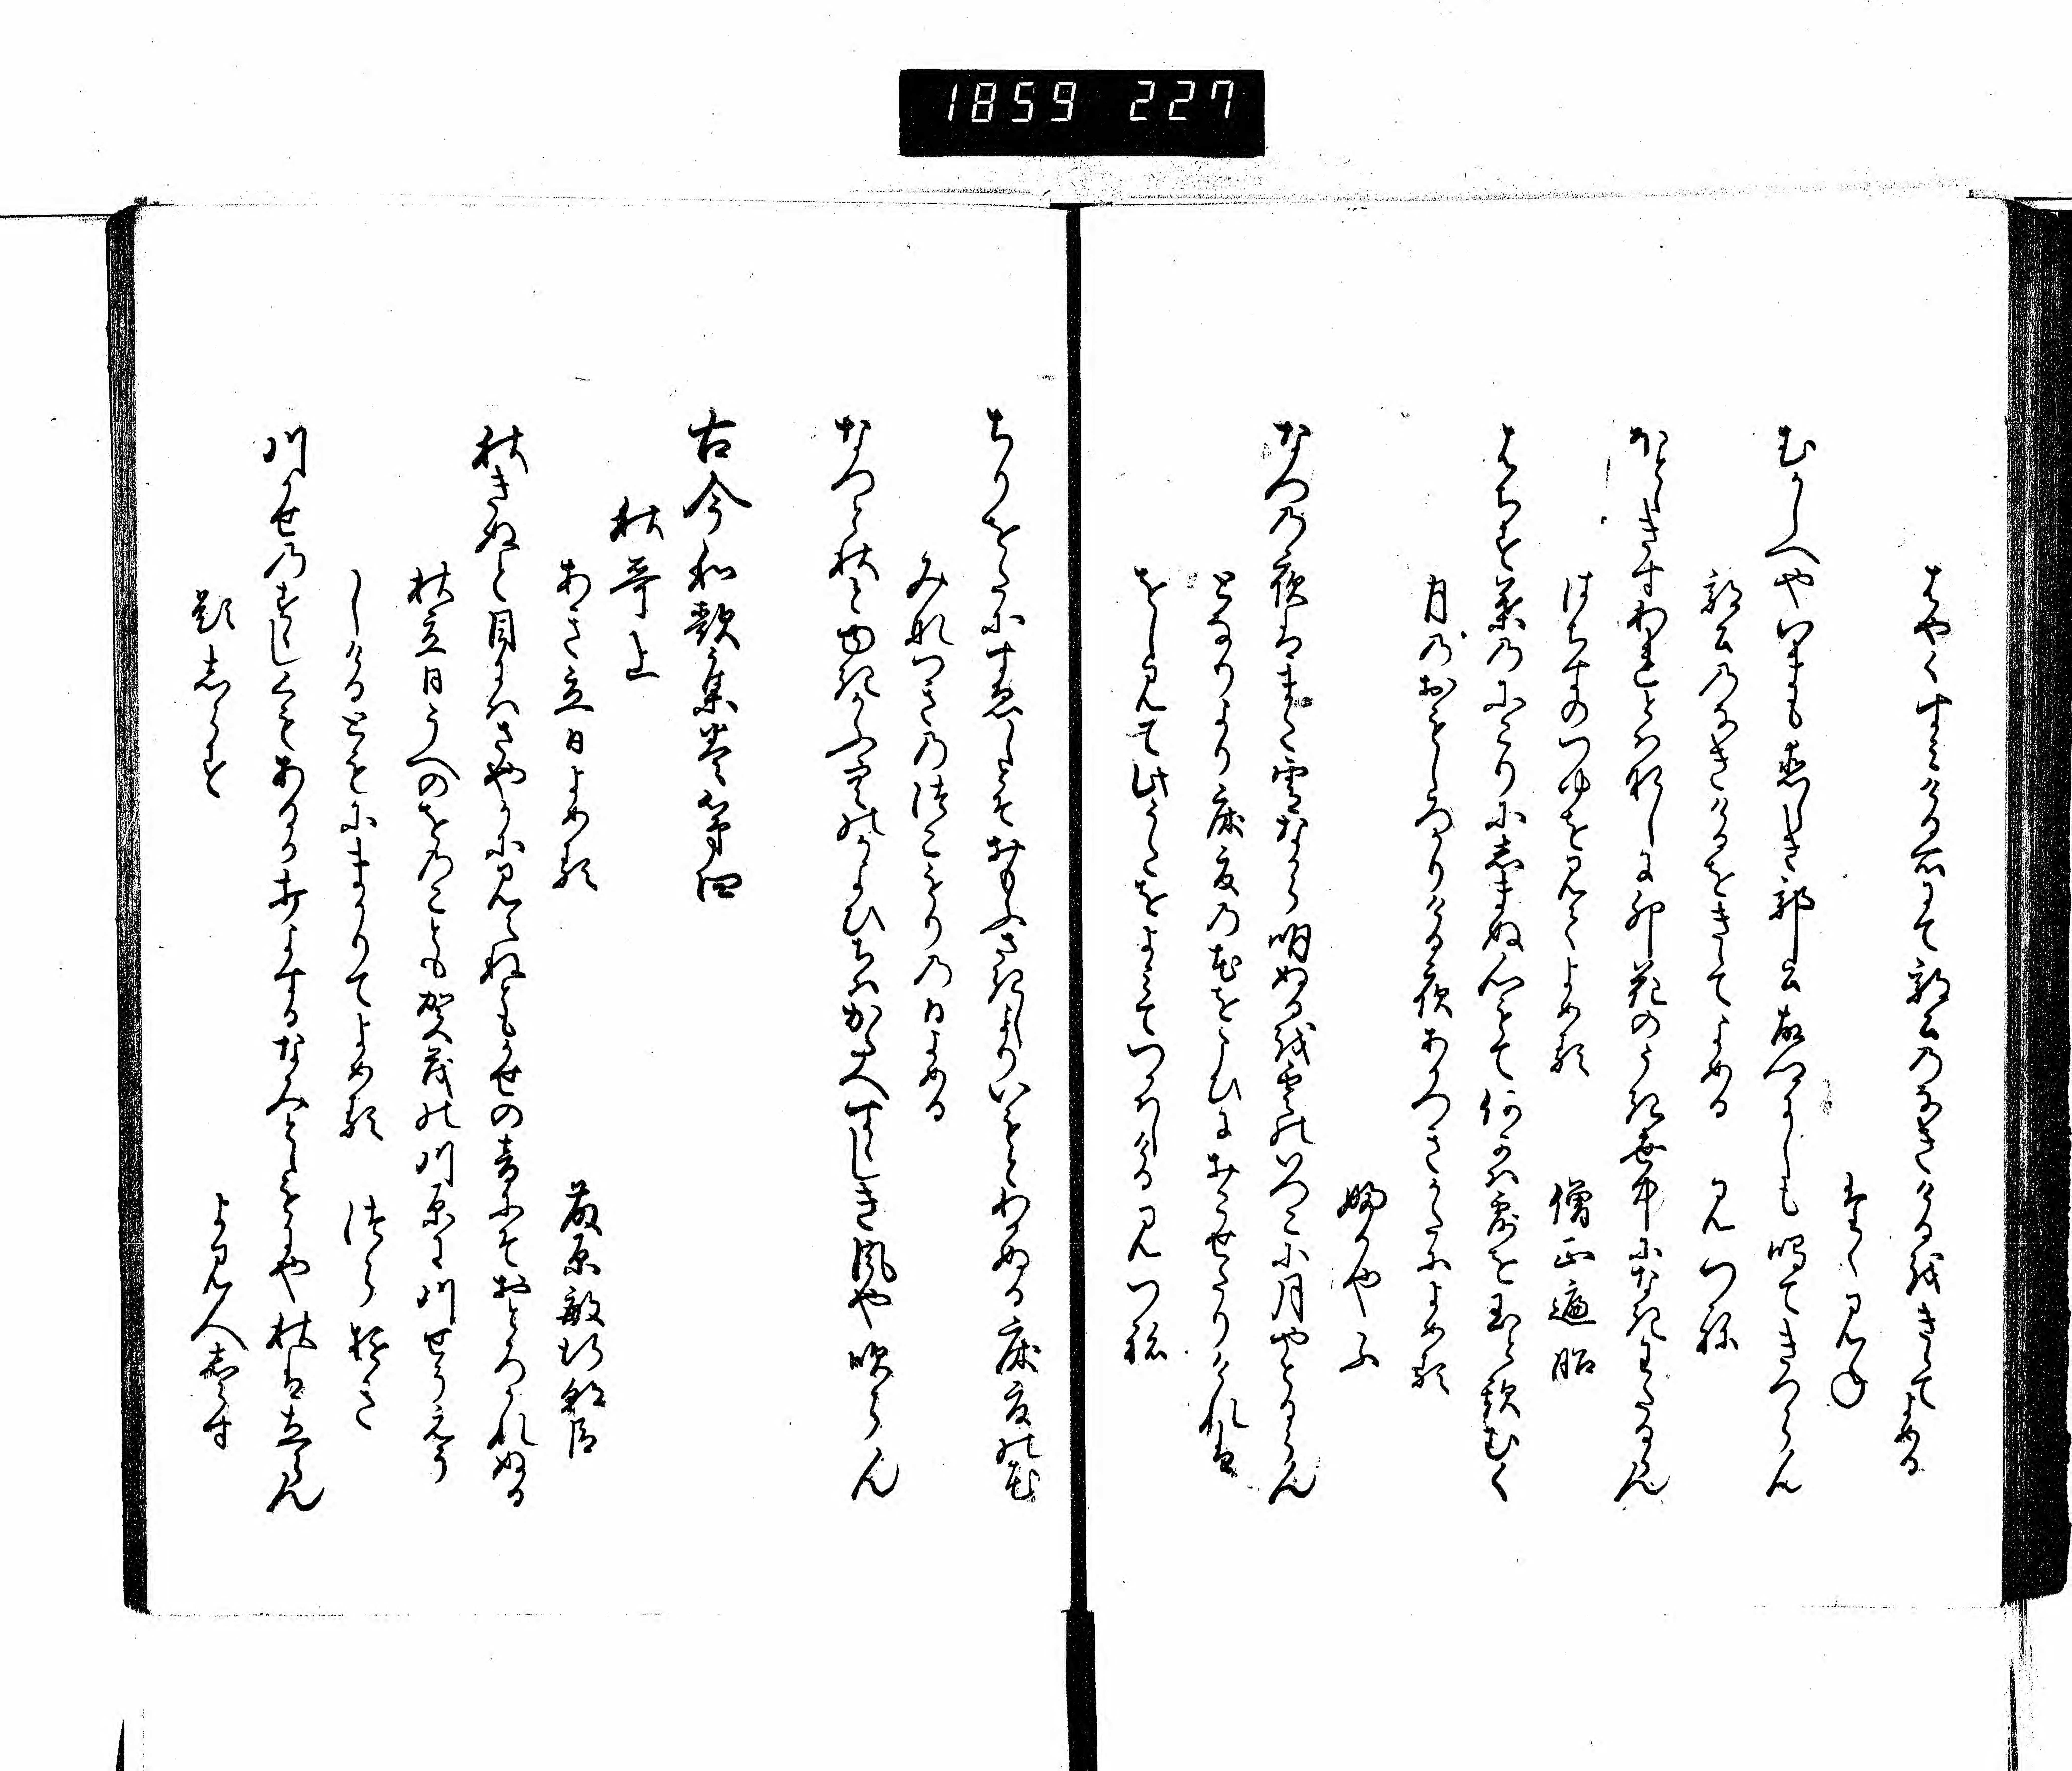 1859 227
はやくすみける所にて郭公のなきけるをきゝてよめる
たゝみね
むかしへやいまも恋しき郭公故郷にしも鳴てきつらん
郭公のなきけるをきゝてよめる みつね
ほとゝきすわれとはなしに卯花のうき世中になきわたるらん
はちすのつゆを見てよめる 僧正遍昭
はちす葉のにこりにしまぬ心もて何かは露を玉と欺むく
月のおもしろかりける夜あかつきかたによめる
婦かやふ
なつの夜はまた宵なから明ぬるを雲のいつこに月やとるらん
となりより床夏の花をこひにおこせたりけれは
をしみて此うたをよみてつかはしける みつね
ちりをたにすゑしとそおもふさきしよりいもとわかぬる床夏の花
みな月つこもりの日よめる
なつと秋と行かふ空のかよひちはかたへすゝしき風や吹らん
古今和歌集巻第四
秋哥上
あき立日よめる 藤原敏行朝臣
秋きぬと目にはさやかに見えねともかせの音にそおとろかれぬる
秋立日うへのをのことも賀茂の川原に川せうえう
しけるともにまかりてよめる つらゆき
川かせのすゝしくもあるか打よするなみとゝもにや秋は立らん
題しらす よみ人しらす